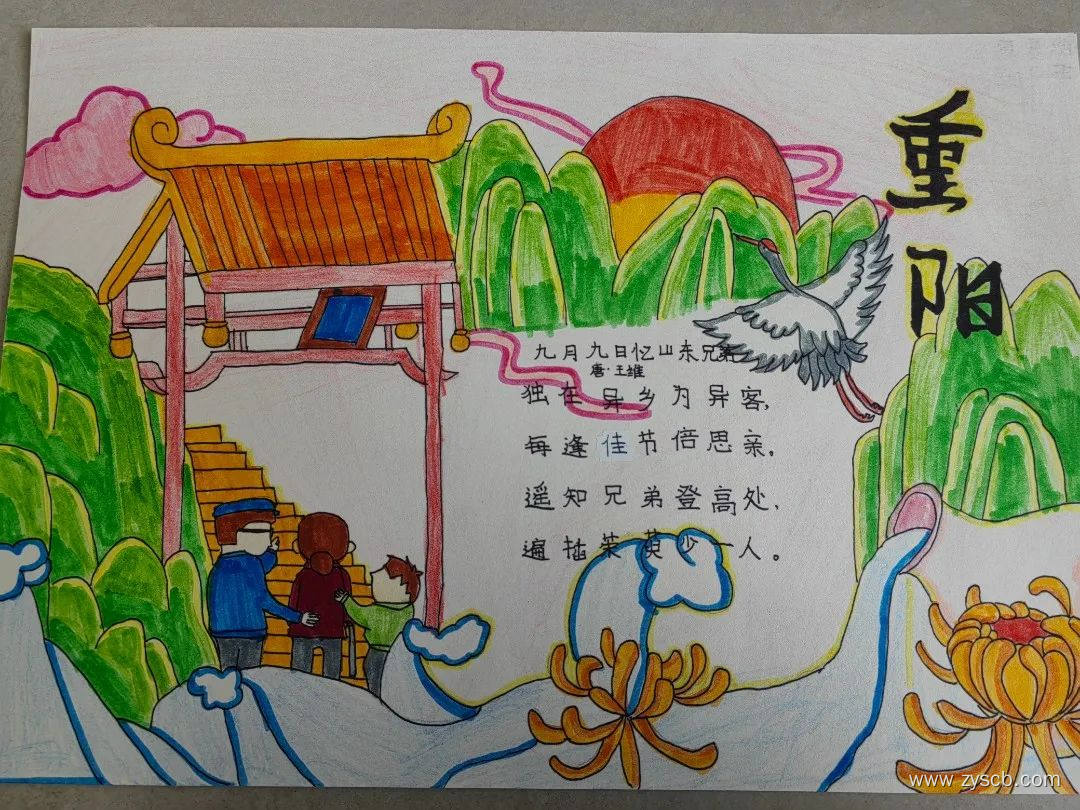 重阳
九月九日忆山东兄弟
唐·王维
独在异乡为异客,
每逢佳节倍思亲。
遥知兄弟登高处,
遍插茱萸少一人。
www.zyscb.com